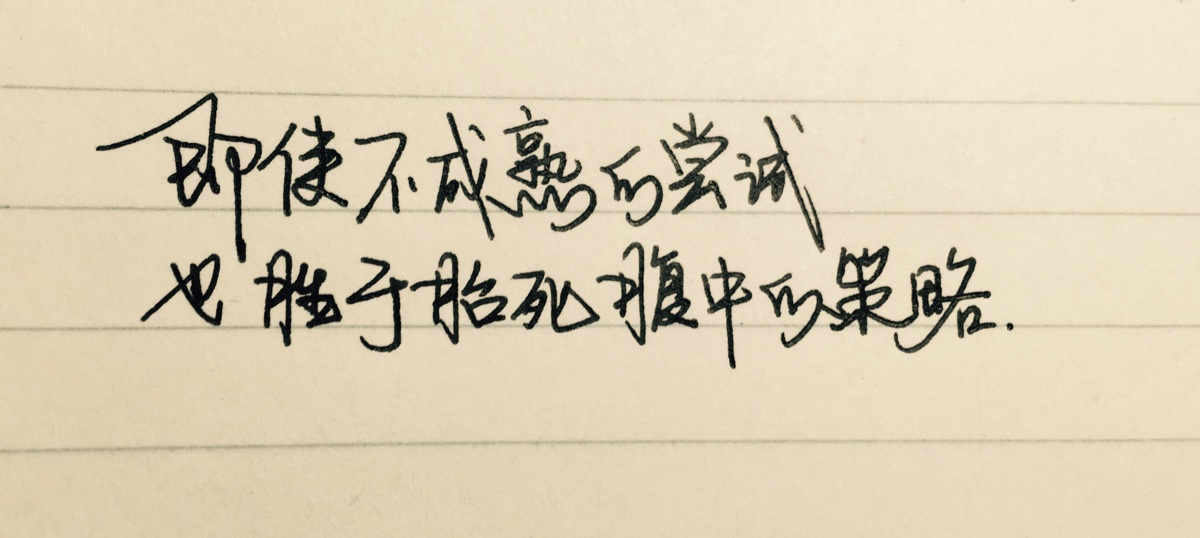 即使不成熟的尝试
也胜于胎死腹中的策略.